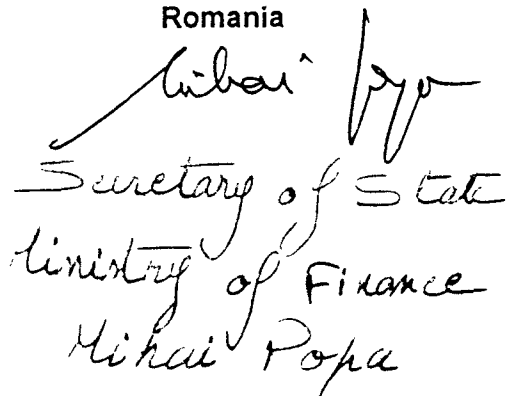 Romania
Mihai Popa
Secretary of State
Ministry of Finance
Mihai Popa